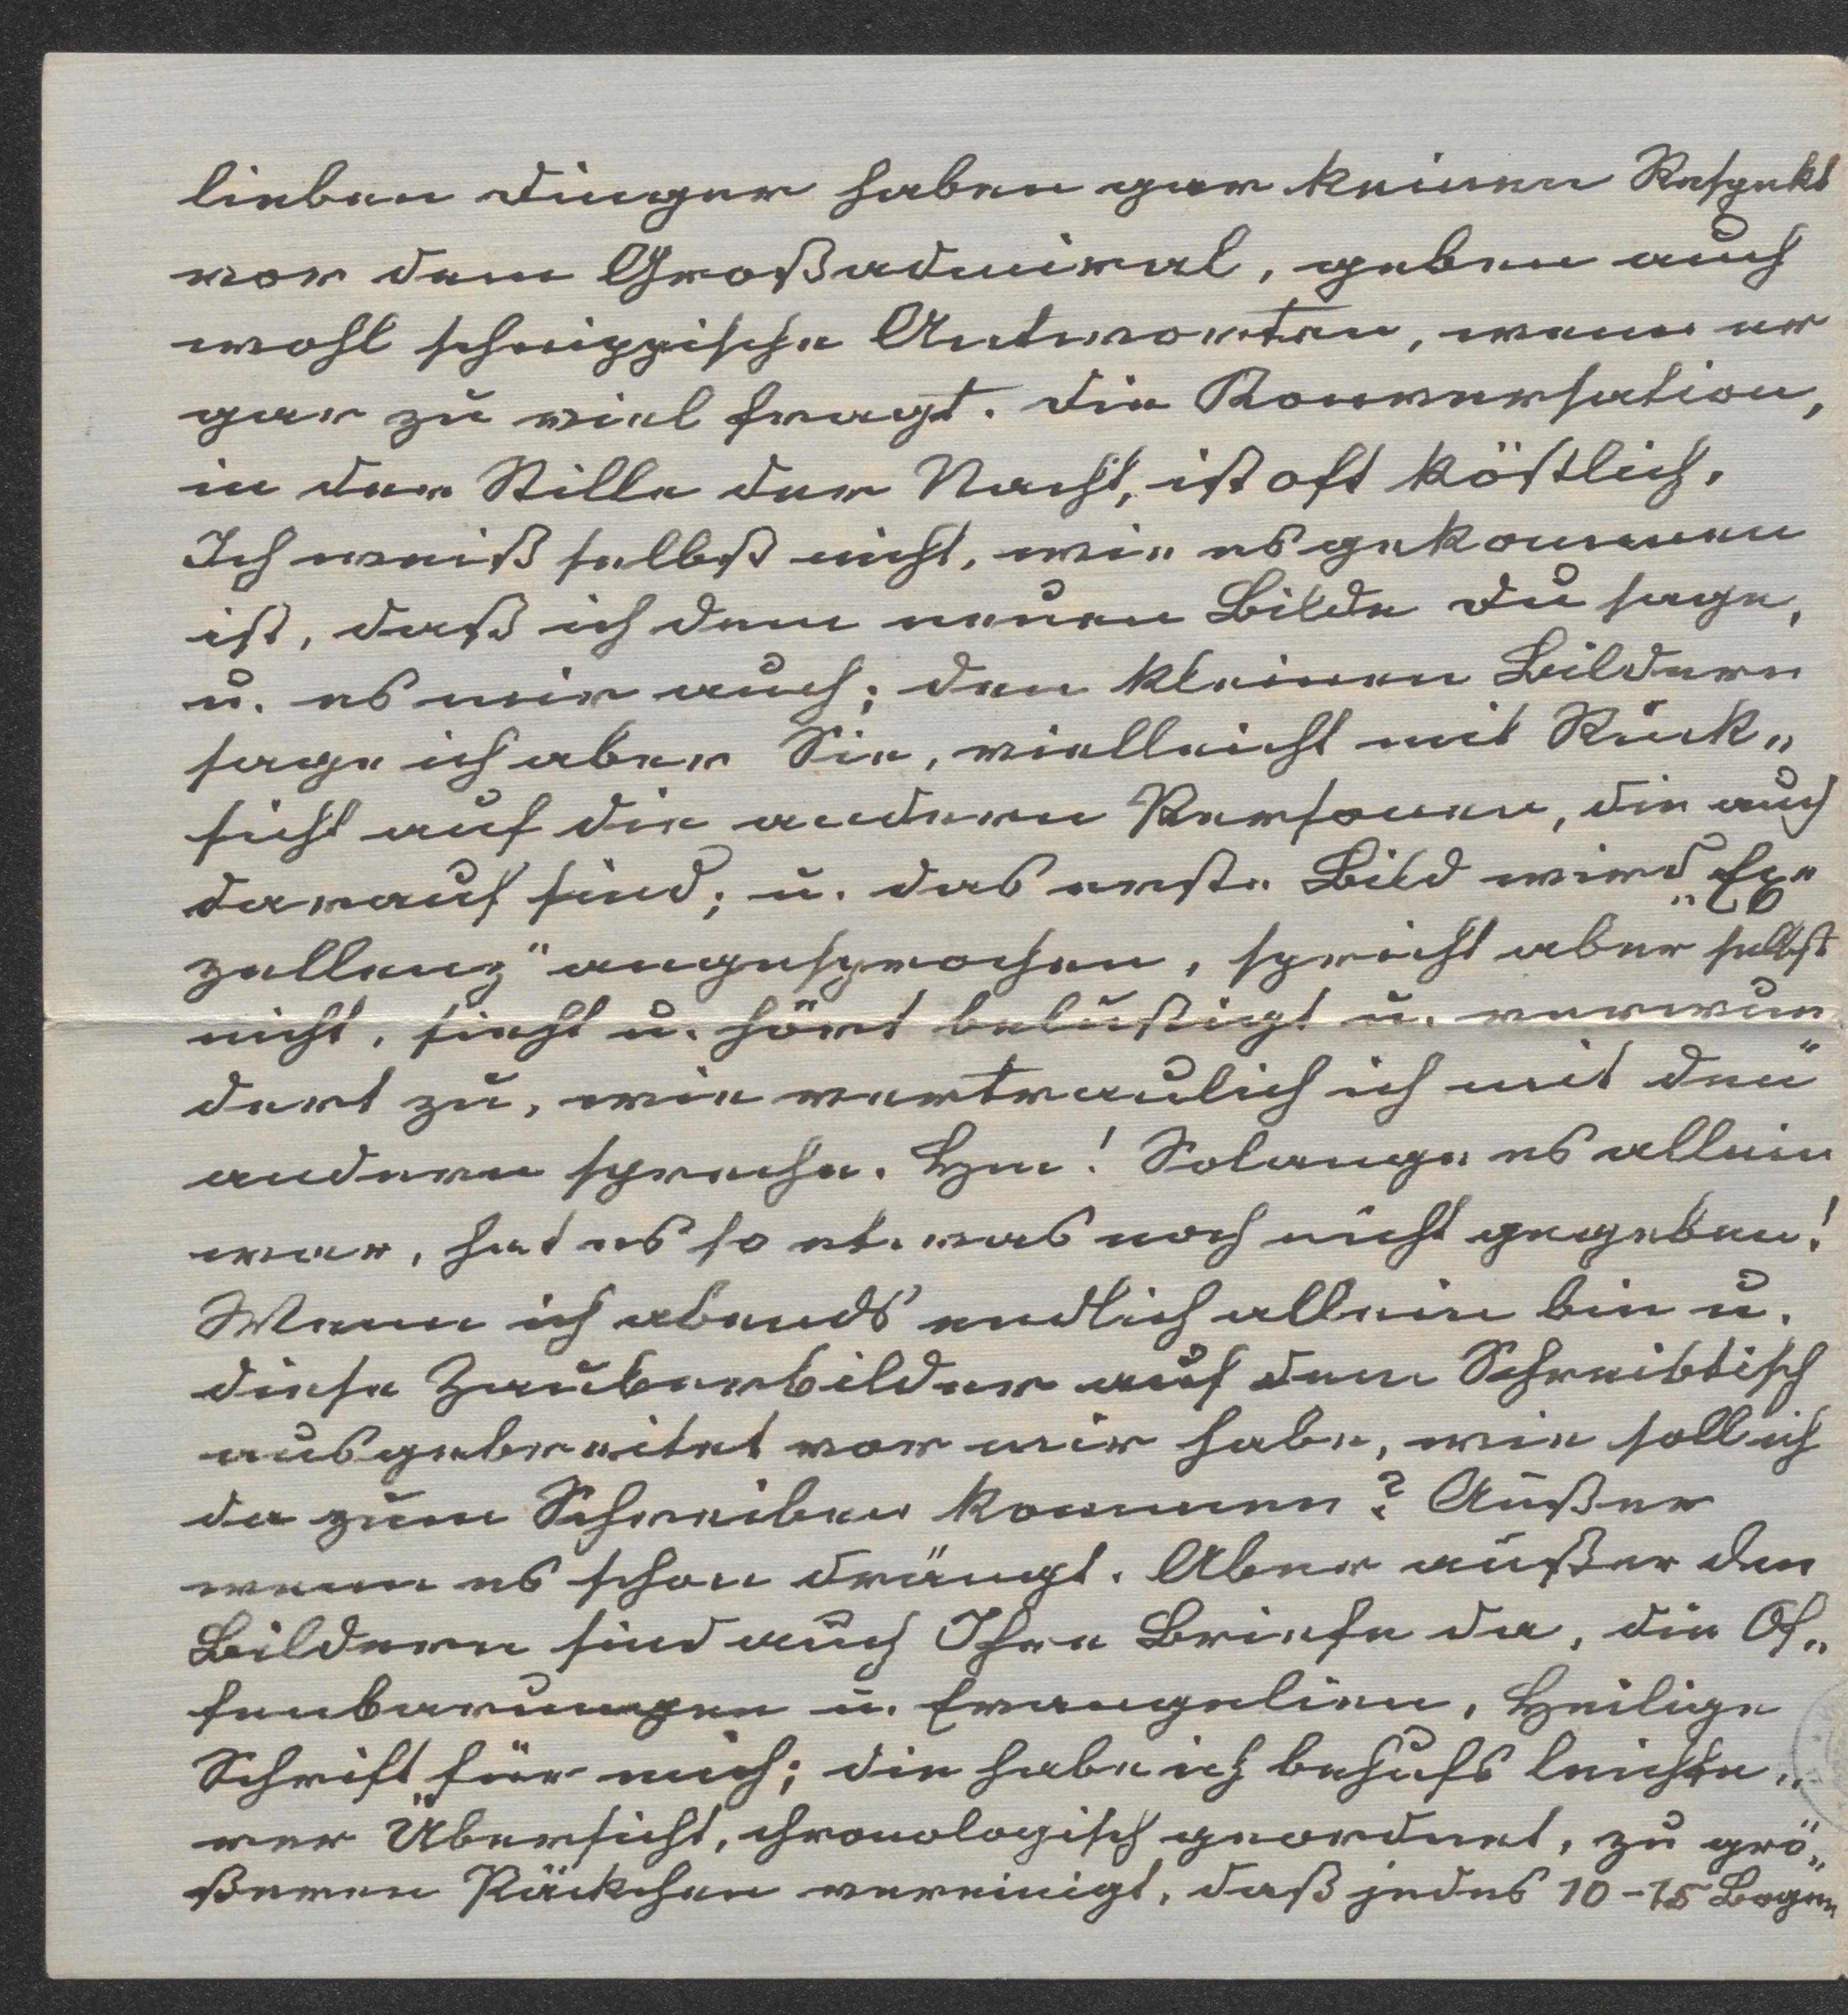 lieben Dinger haben gar keinen Respekt
vor dem Großadmiral, geben auch
wohl schnippische Antworten, wenn er
gar zu viel fragt. Die Konversation,
in der Stille der Nacht, ist oft köstlich.
Ich weiß selbst nicht, wie es gekommen
ist, daß ich dem neuen Bilde Du sage,
u. es mir auch; den kleinen Bildern
sage ich aber Sie, vielleicht mit Rück„
sicht auf die andern Personen, die auch
darauf sind; u. das erste Bild wird „Ex„
zellenz" angesprochen, spricht aber selbst
nicht, sieht u. hört belustigt u. verwun„
dert zu, wie vertraulich ich mit den
andern spreche. Hm! Solange es allein
war, hat es so etwas noch nicht gegeben!
Wenn ich abends endlich allein bin u.
diese Zauberbilder auf dem Schreibtisch
ausgebreitet vor mir habe, wie soll ich
da zum Schreiben kommen? Außer
wenn es schon drängt. Aber außer den
Bildern sind auch Ihre Briefe da, die Of„
fenbarungen u. Evangelien, Heilige
Schrift für mich; die habe ich behufs leichte„
rer Übersicht, chronologisch geordnet, zu grö„
ßeren Päckchen vereinigt, daß jedes 10-15 Bogen